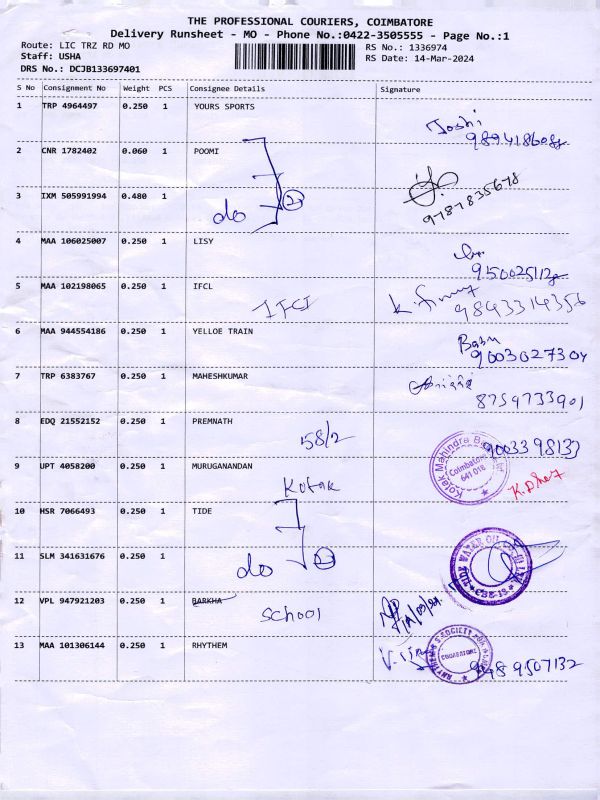 THE PROFESSIONAL COURIERS, COIMBATORE
Delivery Runsheet - MO - Phone No.:0422-3505555 - Page No.:1
Route: LIC TRZ RD MO
RS No.: 1336974
Staff: USHA
RS Date: 14-Mar-2024
DRS No.: DCJB133697401
S No Consignment No Weight PCS Consignee Details Signature
1 TRP 4964497 0.250 1 YOURS SPORTS
Joshi
2 CNR 1782402 0.060 1 POOMI
3 IXM 505991994 0.480 1
do 2
9787835678
4 MAA 106025007 0.250 1 LISY
5 MAA 102198065 0.250 1 IFCL
IFCI
9843314356
6 MAA 944554186 0.250 1 YELLOE TRAIN
Babu
9003027304
7 TRP 6383767 0.250 1 MAHESHKUMAR
8759733901
8 EDQ 21552152 0.250 1 PREMNATH
158/2
9003398133
9 UPT 4058200 0.250 1 MURUGANANDAN
Kotak
Kotak Mahindra
Coimbatore
641 018
10 HSR 7066493 0.250 1 TIDE
11 SLM 341631676 0.250 1
do
TIDE WATER OIL CO.
12 VPL 947921203 0.250 1 BARKHA
School
13 MAA 101306144 0.250 1 RHYTHEM
SOCIETY FOR
COIMBATORE
9489507132